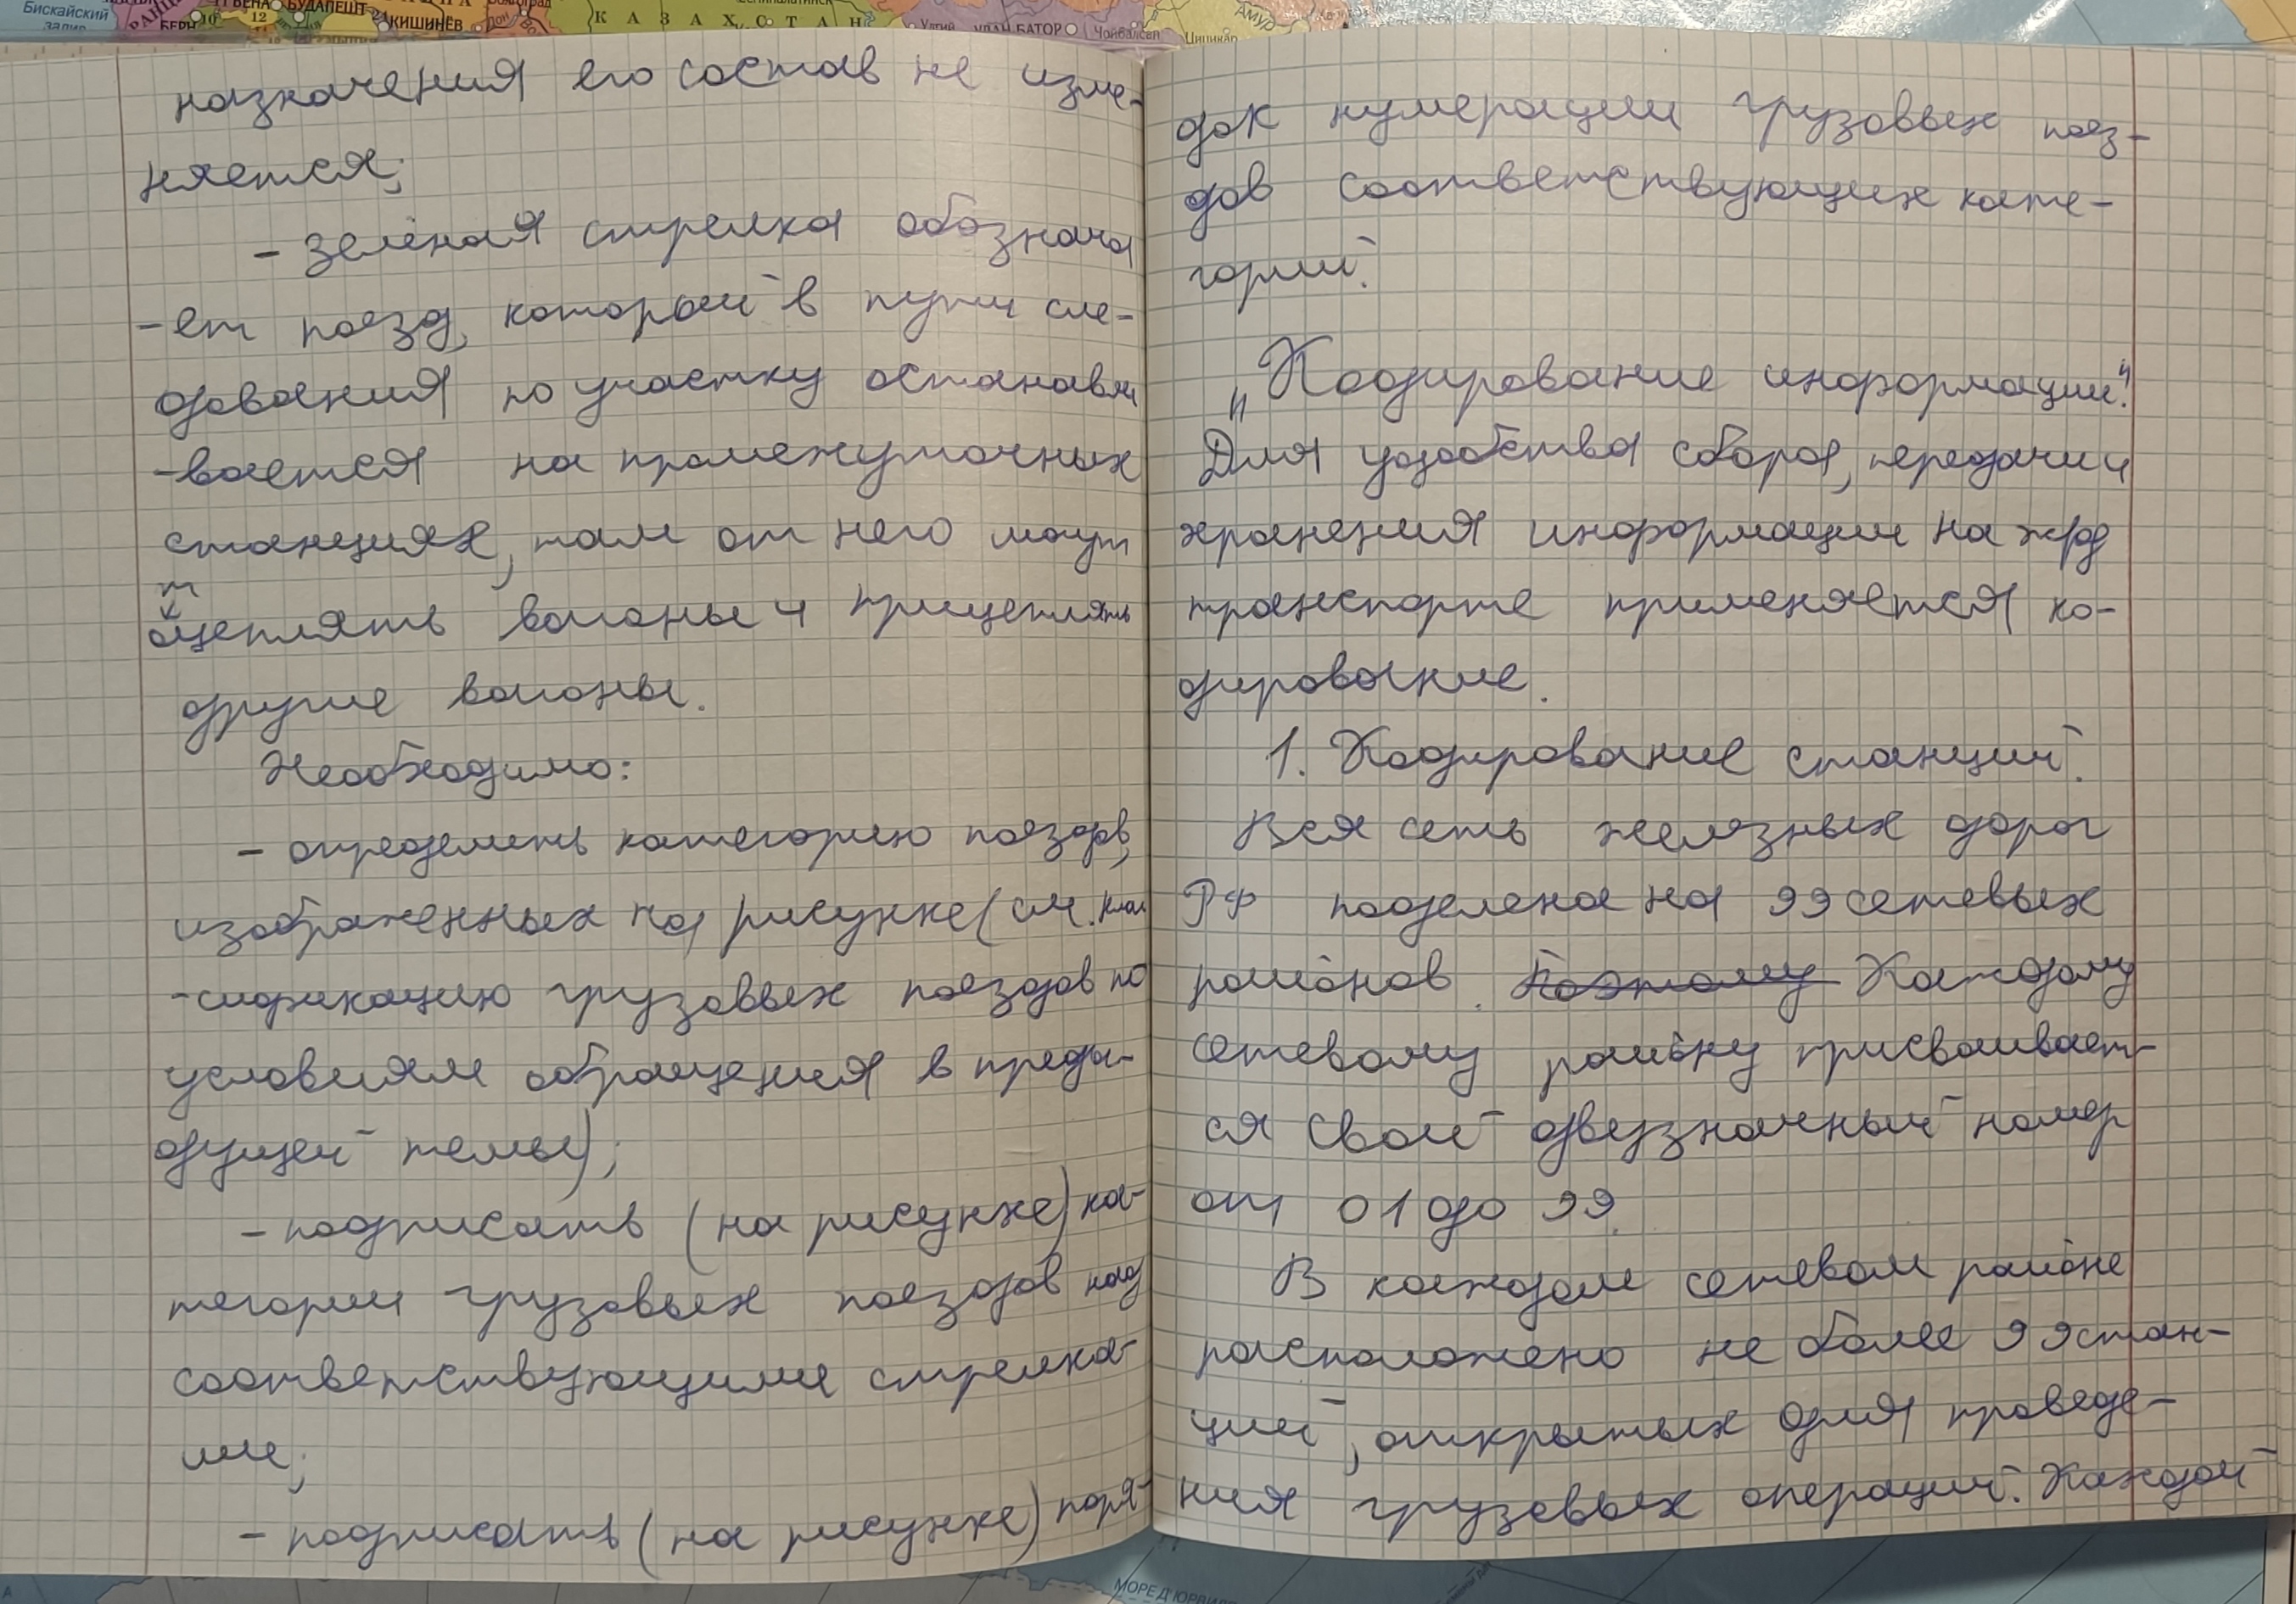 Бискайский
залив
БЕРН
ВЕНА
БУДАПЕШТ
КИШИНЁВ
КАЗАХСТАН
УЛАН-БАТОР
Чойбалсан
Цицикар
АМУР
назначения его состав не изме-
няется;
- зелёная стрелка обознача
-ет поезд, который в пути сле-
дования по участку останавли
-вается на промежуточных
станциях, там от него могут
т
оцеплять вагоны и прицеплять
другие вагоны.
Необходимо:
- определить категорию поездов,
изображенных на рисунке (см. клас
-сификацию грузовых поездов по
условиям обращения в преды-
дущей темы);
- подписать (на рисунке) ка-
тегории грузовых поездов над
соответствующими стрелка-
ми;
- подписать (на рисунке) поря-
док нумерации грузовых поез-
дов соответствующих кате-
горий.
„Кодирование информации".
Для удобства сбора, передачи и
хранения информации на жд
транспорте применяется ко-
дирование.
1. Кодирование станций.
Вся сеть железных дорог
РФ поделена на 99 сетевых
районов. Поэтому Каждому
сетевому району присваивает-
ся свой двузначный номер
от 01 до 99.
В каждом сетевом районе
расположено не более 99 стан-
ций, открытых для проведе-
ния грузовых операций. Каждой